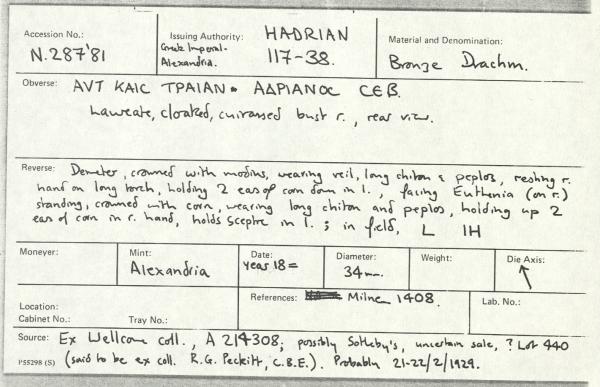 Accession No.:
N.287'81
Issuing Authority:
Greek Imperial-
Alexandria.
HADRIAN
117-38.
Material and Denomination:
Bronze Drachm.
Obverse: ΑVΤ ΚΑΙC ΤΡΑΙΑΝ• ΑΔΡΙΑΝΟC CЄΒ.
Laureate, cloaked, cuirassed bust r., rear view.
Reverse: Demeter, crowned with modius, wearing veil, long chiton & peplos, resting r.
hand on long torch, holding 2 ears of corn down in l., facing Euthenia (on r.)
standing, crowned with corn, wearing long chiton and peplos, holding up 2
ears of corn in r. hand, holds sceptre in l.; in field, L IH
Moneyer:
Mint:
Alexandria
Date:
year 18 =
Diameter:
34mm.
Weight:
Die Axis:
Location:
Cabinet No.: Tray No.:
References: Milne 1408.
Lab. No.:
Source: Ex Wellcome coll., A 214308; possibly Sotheby's, uncertain sale, ? Lot 440
P55298 (S) (said to be ex coll. R.G. Peckitt, C.B.E.). Probably 21-22/2/1929.